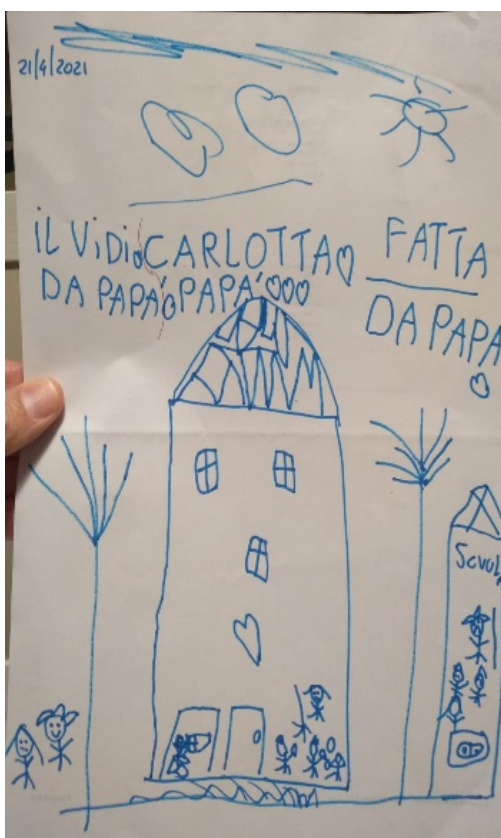 21/4/2021
iL ViDio CARLOTTA
DA PAPÁ PAPÁ
FATTA
DA PAPA
Scuola